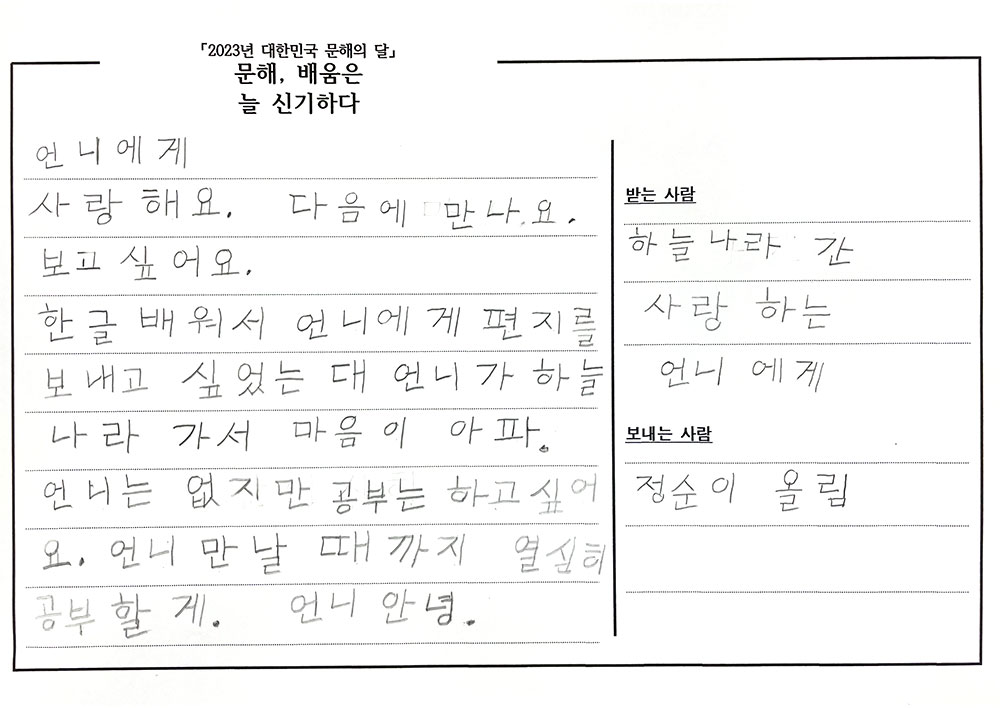 「2023년 대한민국 문해의 달」
문해, 배움은
늘 신기하다
언니에게
사랑해요. 다음에 만나요.
보고싶어요.
한글배워서 언니에게 편지를
보내고 싶었는대 언니가 하늘
나라 가서 마음이 아파.
언니는 없지만 공부는 하고싶어
요. 언니 만날 때까지 열심히
공부할게. 언니 안녕.
받는 사람
하늘나라 간
사랑하는
언니에게
보내는 사람
정순이 올림